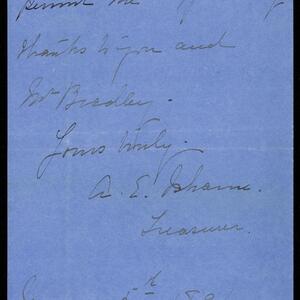 permit me
thanks to you and
Mr Bradley.
Yours truly.
A. E. Isham.
Treasurer.
5th